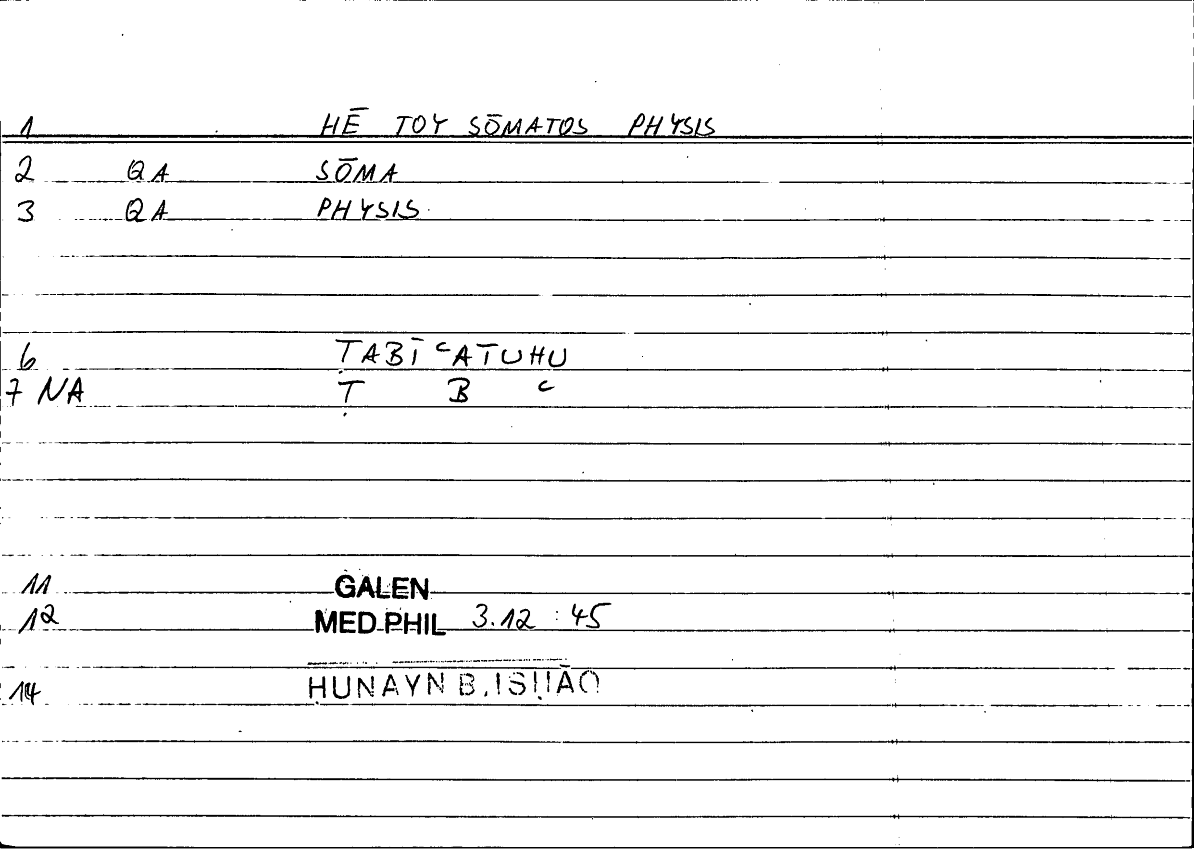 1 HĒ TOY SŌMATOS PHYSIS
2 QA SŌMA
3 QA PHYSIS
6 ṬABĪʿATUHU
7 NA Ṭ B ʿ
11 GALEN
12 MED.PHIL 3.12 : 45
14 ḤUNAYN B.ISḤĀQ